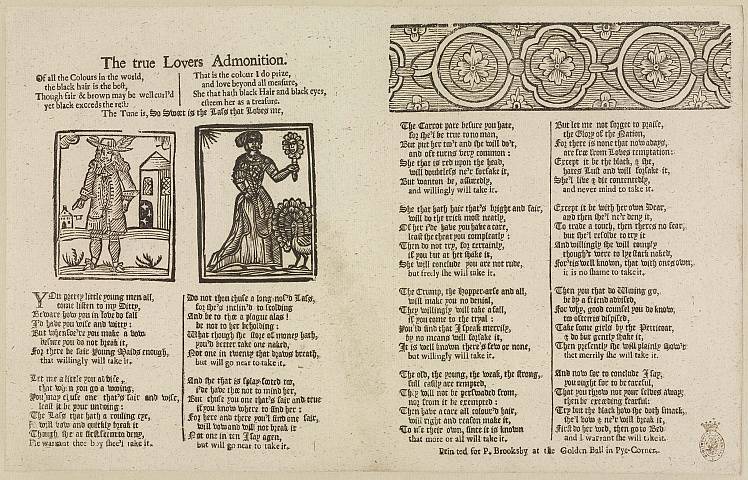 The true Lovers Admonition.
Of all the Colours in the world,
the black hair is the best,
Though fair & brown may be well curl'd
yet black exceeds the rest:
That is the colour I do prize,
and love beyond all measure,
She that hath black Hair and black eyes,
esteem her as a treasure.
The Tune is, So Sweet is the Lass that Loves me,
YOu pretty little young men all,
come listen to my Ditty,
Beware how you in love do fall
I'd have you wise and witty:
But whensoe're you make a vow
besure you do not break it,
For there be fair Young Maids enough,
that willingly will take it.
Let me a little you advise,
that when you go a wooing,
You may chuse one that's fair and wise,
least it be your undoing:
The Lass that hath a rouling eye,
will vow and quickly break it
Though she at first seem to deny,
He warrant thee boy she'l take it.
Do not then chuse a long-nos'd Lass,
for she's inclin'd to scolding
And be to thee a plague alas!
be not to her beholding:
What though she store of money hath,
you'd better take one naked,
Not one in twenty that draws breath,
but will go near to take it.
And she that is splay-footed too,
i'de have thee not to mind her,
But chuse you one that's fair and true
if you know where to find her:
For here and there you'l find one fair,
will vow and will not break it
Not one in ten I say agen,
but will go near to take it.
The Carrot pate besure you hate,
for she'l be true to no man,
But put her to't and she will do't,
and oft turns very common:
She that is red upon the head,
will doubtless ne'r forsake it,
But wanton be, assuredly,
and willingly will take it.
She that hath hair that's bright and fair,
will do the trick most neatly,
Of her i'de have you have a care,
least she cheat you compleatly:
Then do not try, for certainly,
if you but at her shake it,
She will conclude you are not rude,
but freely she will take it.
The Crump, the Hopper-arse and all,
will make you no denial,
They willingly will take a fall,
if you come to the tryal:
You'd find that I speak merrily,
by no means will forsake it,
It is well known there's few or none,
but willingly will take it.
The old, the young, the weak, the strong,
full easily are tempted,
They will not be perswaded from,
nor from it be exempted:
Then have a care all colour'd hair,
will right and reason make it,
To use their own, since it is known
that more or all will take it.
But let me not forget to praise,
the Glory of the Nation,
For there is none that now adays,
are free from Loves temptation:
Except it be the black, & she,
hates Lust and will forsake it,
She'l live & die contentedly,
and never mind to take it.
Except it be with her own Dear,
and then she'l ne'r deny it,
To trade a touch, then theres no fear,
but she'l resolve to try it
And willingly she will comply
though't were to lye stark naked,
For'tis well known, that with ones own,
it is no shame to take it.
Then you that do Wiving go,
be by a friend advised,
For why, good counsel you do know,
Take some girls by the Petticoat,
& do but gently shake it,
Then presently she will plainly show't
that merrily she will take it.
And now for to conclude I say,
you ought for to be careful,
That you throw not your selves away,
then be exceeding fearful:
Try but the black how she doth smack,
she'l vow & ne'r will break it,
First do her wed, then go to Bed
and I warrant she will take it.
Printed for P. Brooksby at the Golden Ball in Pye-Corner.